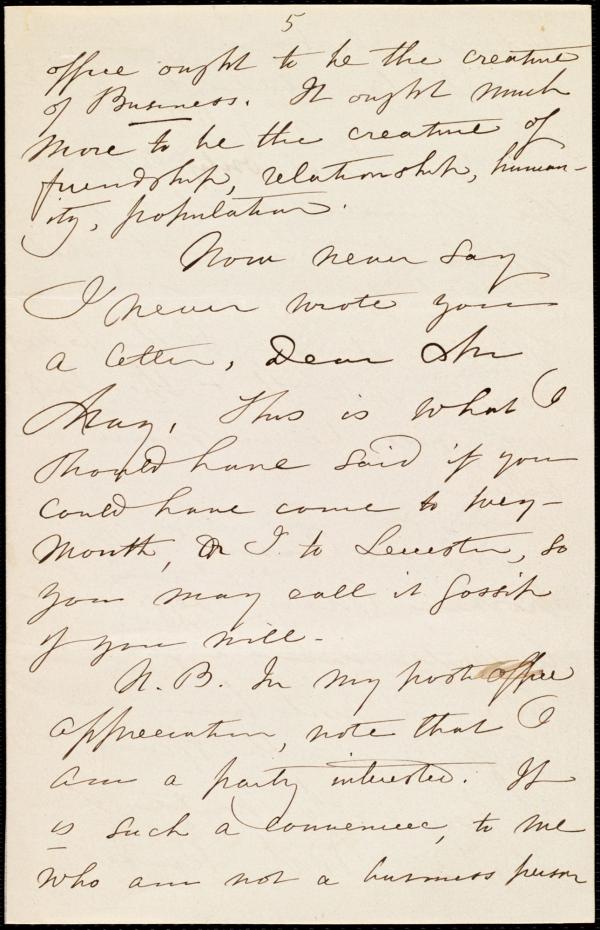 5
office ought to be the creature
of Business. It ought much
more to be the creature of
friendship, relationship, human-
ity, population.
Now never say
I never wrote you
a letter, Dear Mr
May. This is what I
should have said if you
could have come to Wey-
mouth, or I to Leicester, so
you may call it gossip
if you will-
N. B. In my post office
appreciation, note that I
am a party interested. It
is such a convenience, to me
who am not a business person